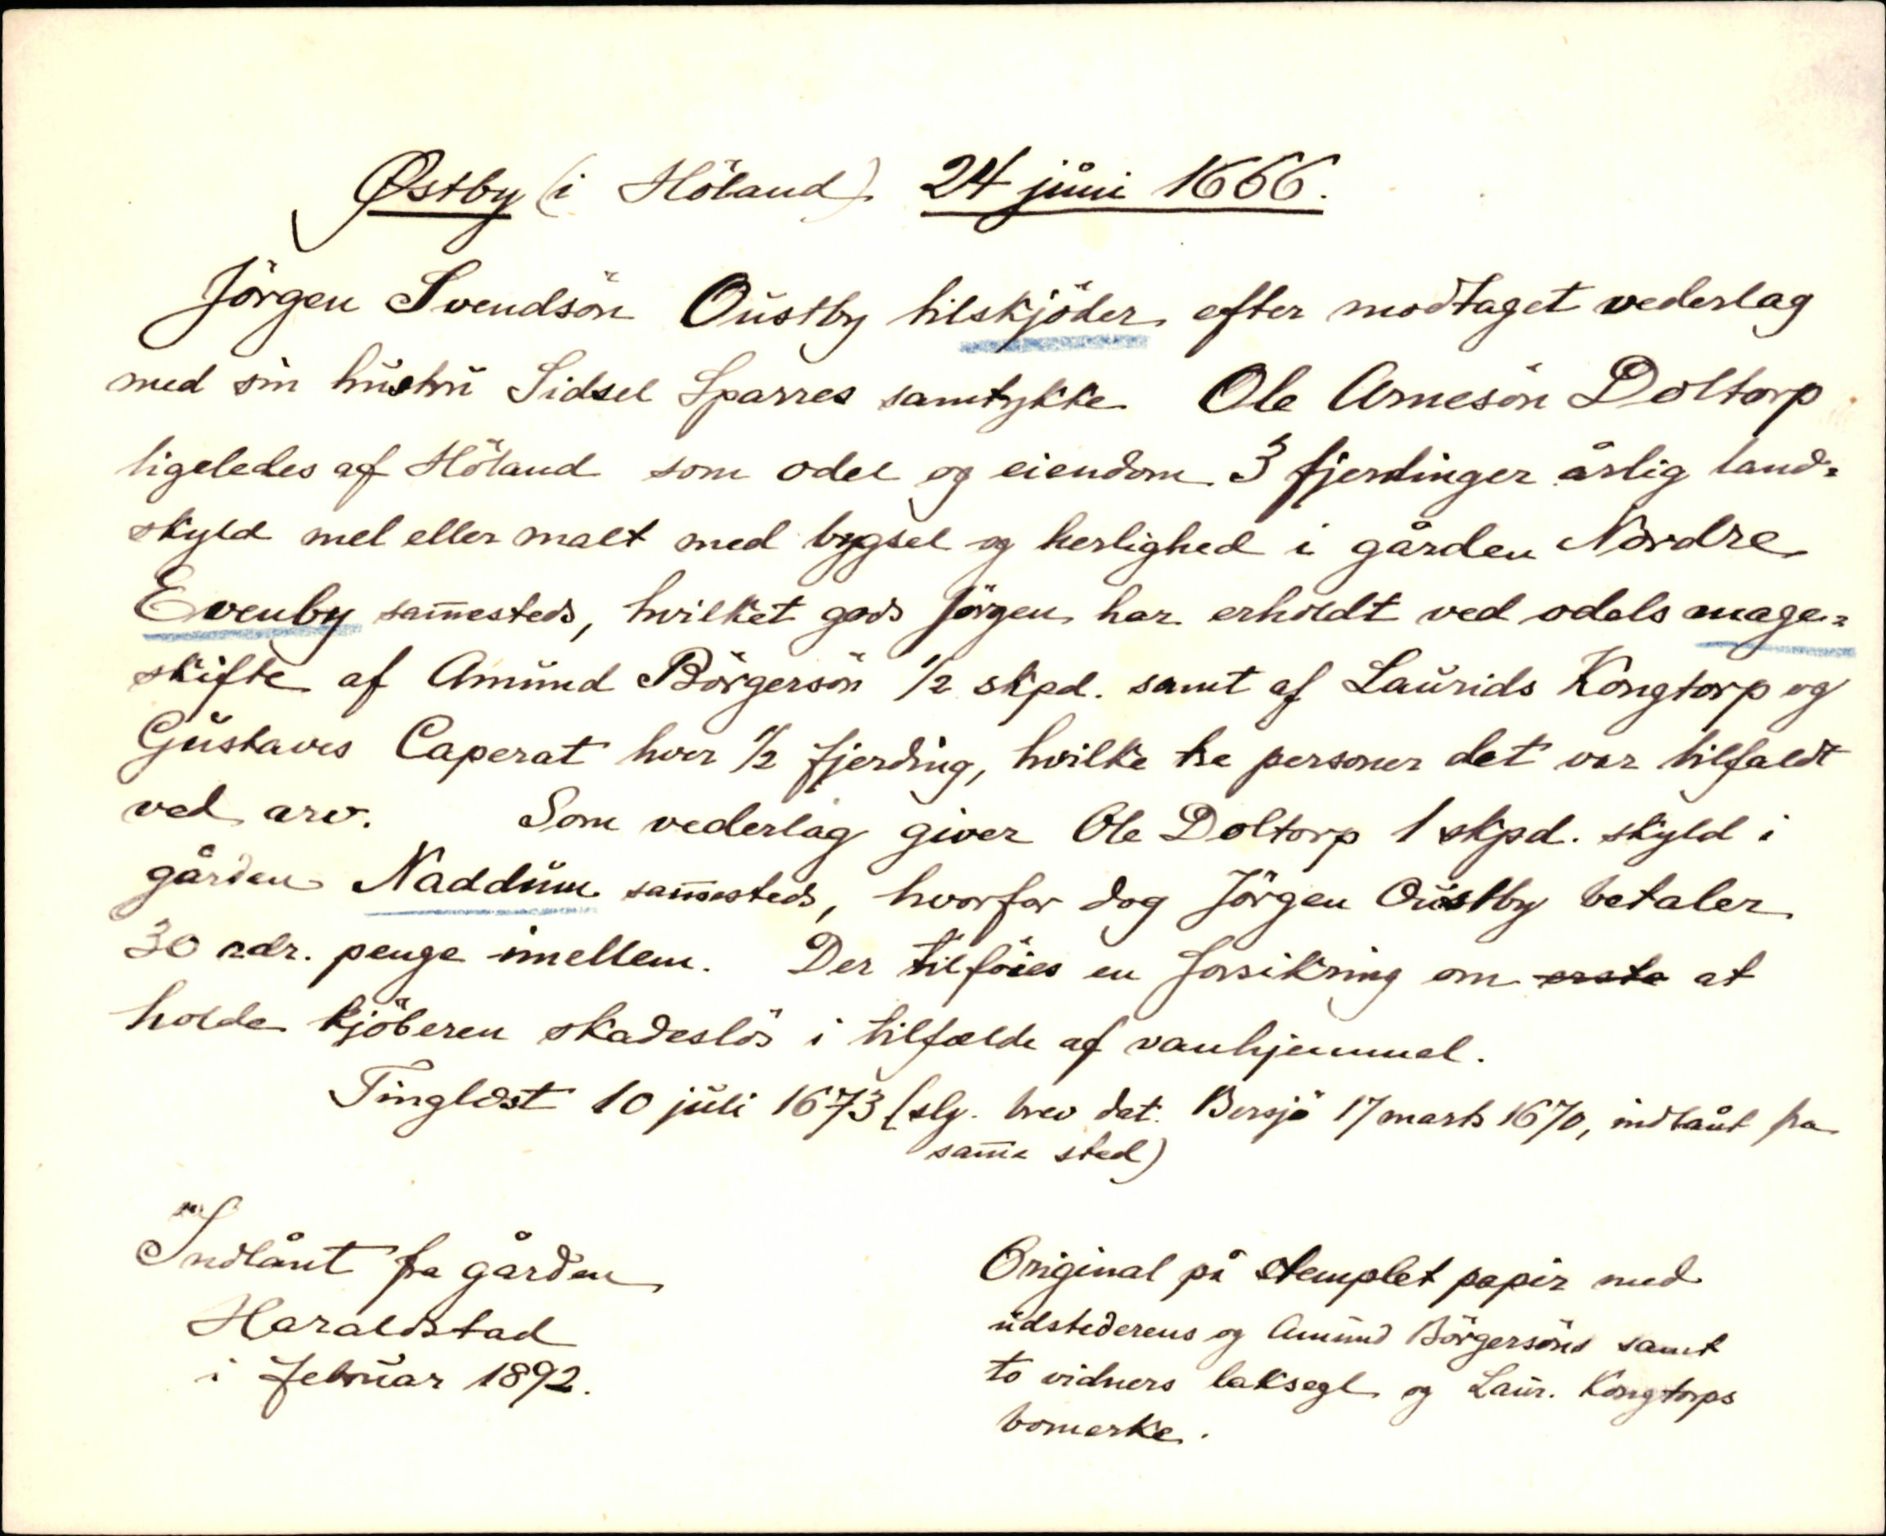 Østby (i Höland) 24 juni 1666.
Jörgen Svendsön Oustby tilskjöder efter modtaget vederlag
med sin hustru Sidsel Sparres samtykke Ole Arnesön Doltorp
ligeledes af Höland som odel og eiendom 3 fjerdinger årlig land=
skyld mel eller malt med bygsel og herlighed i gården Nordre
Evenby sam̄esteds, hvilket gods Jörgen har erholdt ved odels mage=
skifte af Amund Börgersön 1/2 skpd. samt af Laurids Kongtorp og
Gustavus Caperat hver 1/2 fjerding, hvilke tre personer det var tilfaldt
ved arv. Som vederlag giver Ole Doltorp 1 skpd. skyld i
gården Naddum sam̄esteds, hvorfor dog Jörgen Oustby betaler
30 rdr. penge imellem. Der tilföies en forsikring om at
holde kjöberen skadeslös i tilfælde af vanhjemmel.
Tinglæst 10 juli 1673 (slg. brev dat. Bersjö 17 marts 1670, indlånt fra
sam̄e sted)
Indlånt fra gården
Haraldstad
i februar 1892.
Original på stemplet papir med
udstederens og Amund Börgersöns samt
to vidners laksegl og Laur. Kongtorps
bomerke.